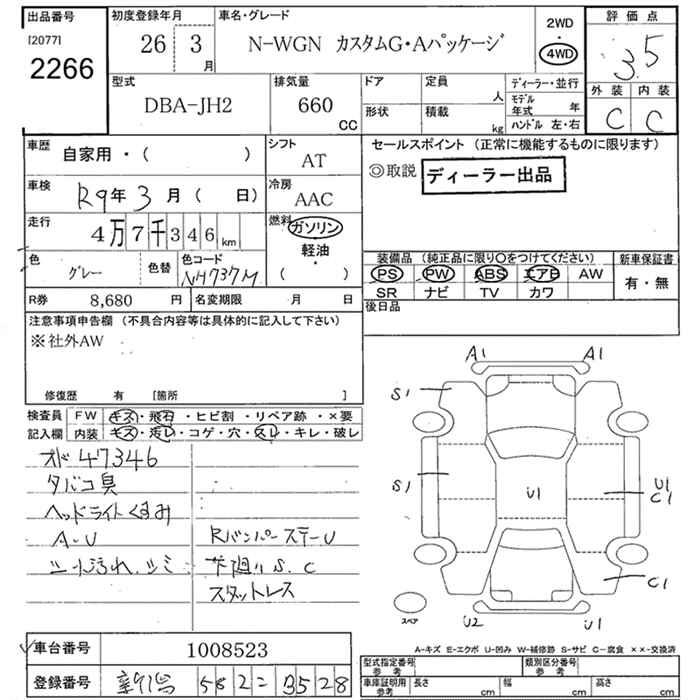 出品番号
[2077]
2266
初度登録年月
26年 3月
車名・グレード
N-WGN カスタムG・Aパッケージ
2WD
・
4WD
評価点
3.5
外装 内装
C C
型式
DBA-JH2
排気量
660
CC
ドア
形状
定員 人
積載 kg
ディーラー・並行
モデル年式 年
ハンドル 左・右
車歴 自家用・( )
シフト
AT
車検 R9年3月( 日)
冷房
AAC
走行 4万7千346km
燃料
ガソリン
軽油
・
( )
色 グレー 色替 色コード NH737M
R券 8,680 円 名変期限 月 日
セールスポイント (正常に機能するものに限ります)
◎取説 ディーラー出品
装備品 (純正品に限り〇をつけてください) 新車保証書
PS PW ABS エアB AW 有・無
SR ナビ TV カワ
後日品
注意事項申告欄 (不具合内容等は具体的に記入して下さい)
※社外AW
修復歴 有 [箇所 ]
検査員 FW キズ・飛石・ヒビ割・リペア跡・×要
記入欄 内装 キズ・汚レ・コゲ・穴・スレ・キレ・破レ
オド 47346
タバコ臭
ヘッドライトくすみ
A-U Rバンパーステー U
シート汚れ、シミ 下廻り S.C
スタットレス
A1 A1
S1
S1 U1 U1
C1
C1
スペア U2 U1
A-キズ E-エクボ U-凹み W-補修跡 S-サビ C-腐食 ××-交換済
車台番号 1008523
登録番号 新潟 582 9528
型式指定番号 参考 類別区分番号 参考
車庫証明用 参考 長さ cm 幅 cm 高さ cm